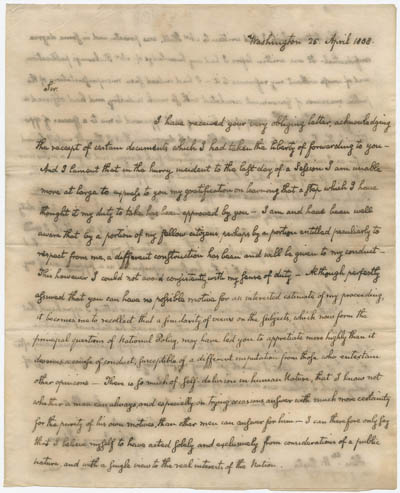 Washington 25 April 1838
Sir
I have received your very obliging letter, acknowledging
the receipt of certain documents which I had taken the liberty of forwarding to you –
And I lament that in the hurry incident to the last day of a Session I am unable
more at large to express to you my gratification on learning that a step which I have
thought it my duty to take has been approved by you – I am and have been well
aware that by a portion of my fellow citizens, perhaps by a portion entitled peculiarly to
respect from me, a different construction has been and will be given to my conduct –
This however I could not avoid consistently with my sense of duty – Although perfectly
assured that you can have no possible motive for an interested estimate of my proceeding,
it becomes me to recollect that a similarity of views on the subjects, which now form the
principal questions of National Policy, may have led you to appreciate more highly than it
deserves a course of conduct, susceptible of a different imputation from those who entertain
other opinions – There is so much of self-delusion in human Nature, that I know not
whether a man can always and especially on trying occasions answer with much more certainty
for the purity of his own motives, than other men can answer for him – I can therefore only say
that I believe myself to have acted solely and exclusively from considerations of a public
nature and with a single view to the real interests of the Nation.